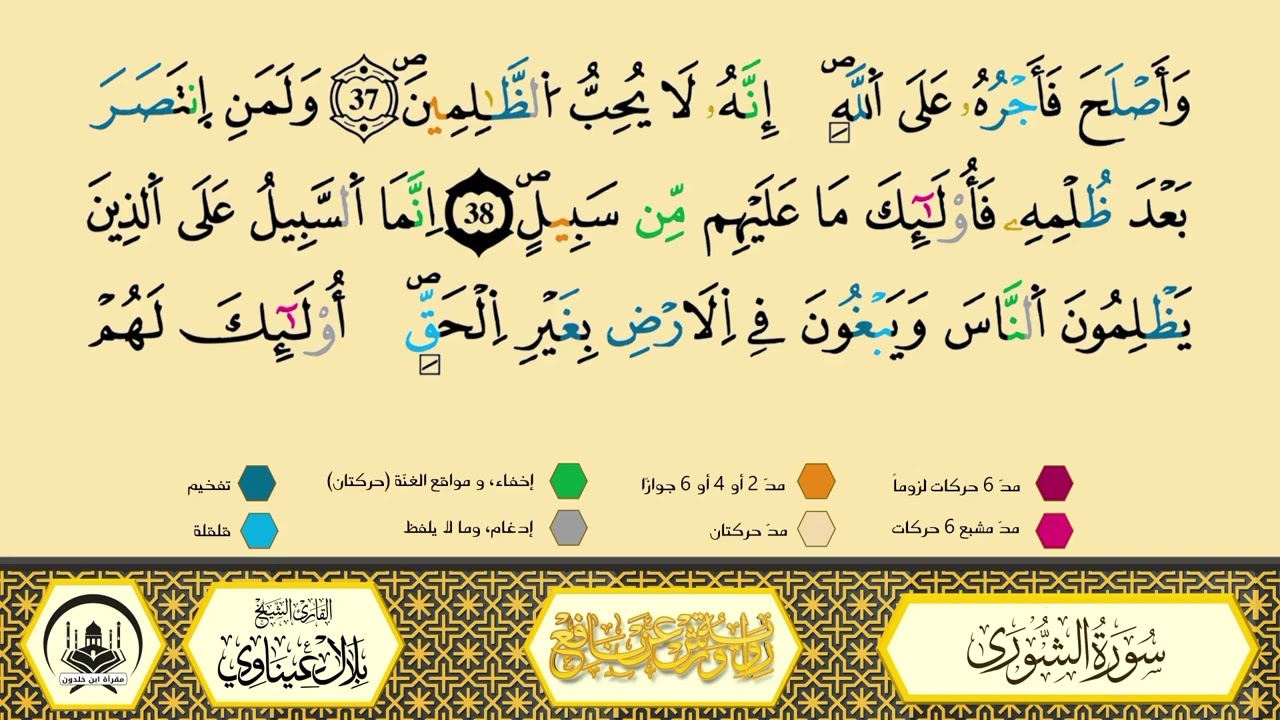 وَأَصْلَحَ فَأَجْرُهُۥ عَلَى اَ۬للَّهِۖ إِنَّهُۥ لَا يُحِبُّ اُ۬لظَّٰلِمِينَۖ 37 وَلَمَنِ اِ۪نتَصَرَ
بَعْدَ ظُلْمِهِۦ فَأُوْلَٰٓئِكَ مَا عَلَيْهِم مِّن سَبِيلٍۖ 38 اِنَّمَا اَ۬لسَّبِيلُ عَلَى اَ۬لذِينَ
يَظْلِمُونَ اَ۬لنَّاسَ وَيَبْغُونَ فِے اِ۬لَارْضِ بِغَيْرِ اِ۬لْحَقِّۖ أُوْلَٰٓئِكَ لَهُمْ
مدّ 6 حركات لزوماً مدّ 2 أو 4 أو 6 جوازًا إخفاء، و مواقع الغنّة (حركتان) تفخيم
مدّ مشبع 6 حركات مدّ حركتان إدغام، وما لا يلفظ قلقلة
سُورَةُ الشُّورَى
رواية ورش عن نافع
القارئ الشيخ
بلال عيناوي
مقرأة ابن خلدون